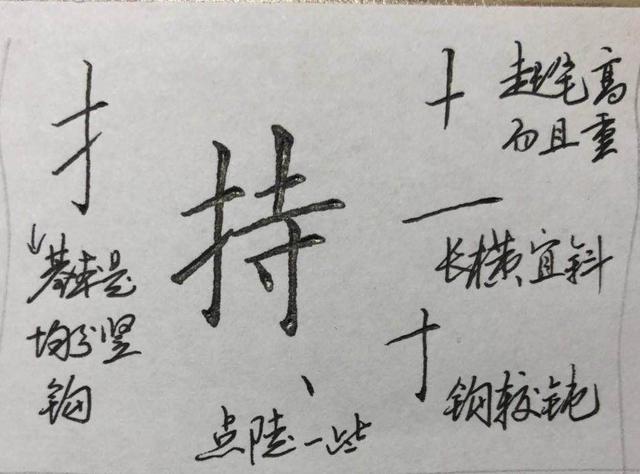 持
基本是
均分竖
钩
起笔高
而且重
长横宜斜
钩较钝
点陡一些